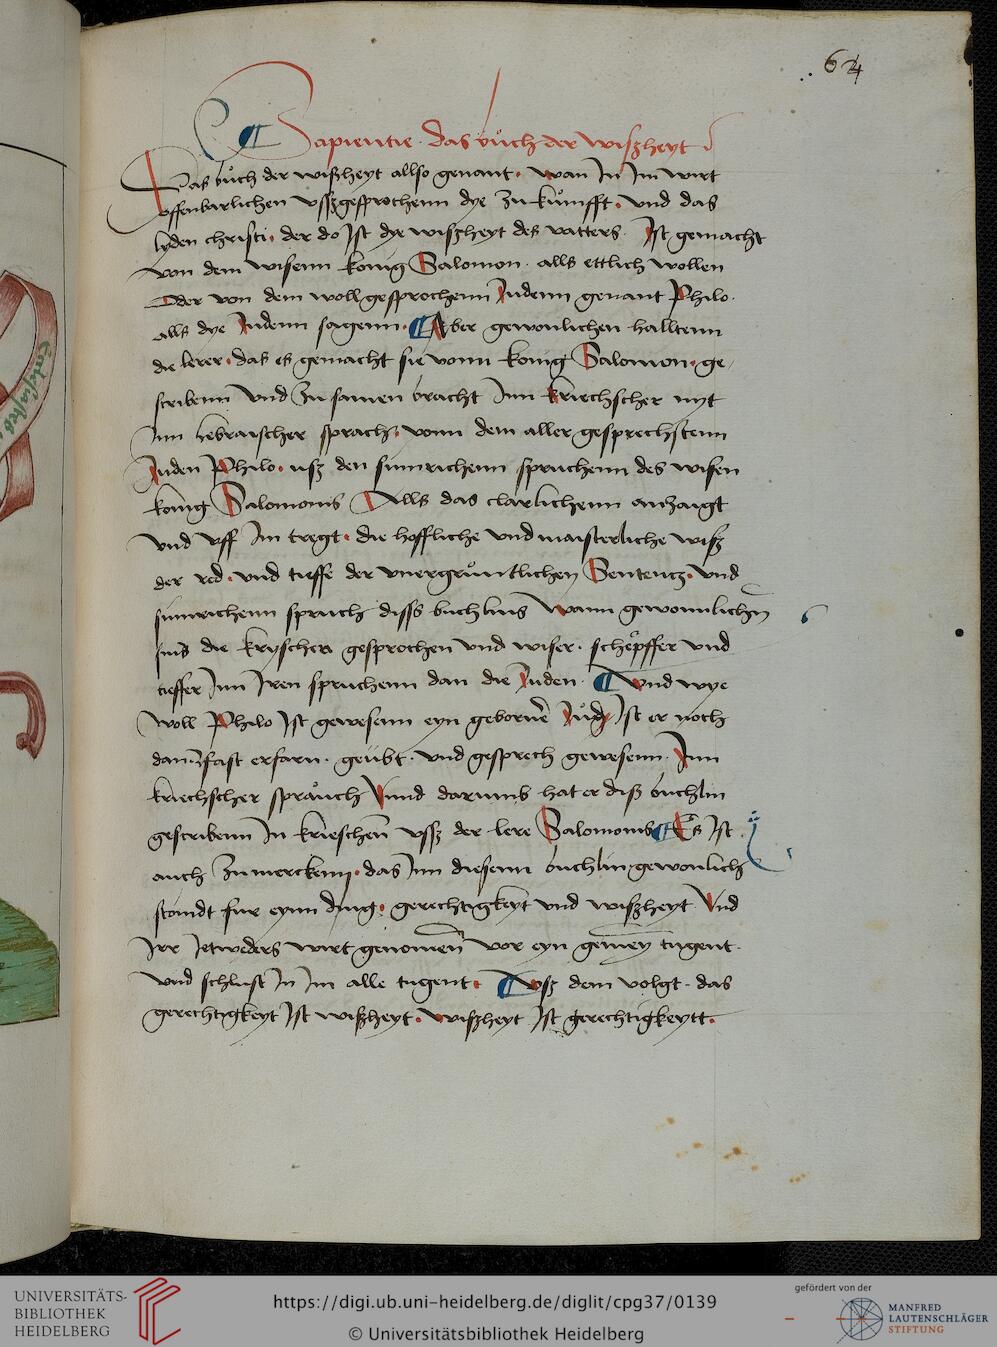 64
¶ Sapientie · das bůch der wißheyt
Das bůch der wißheyt allso genant · wan Jn Jm wirt
offenbarlichen vßgesprochenn dye zukůnfft · vnd das
lyden christi · der do Jst dye wißheyt des vatters · Jst gemacht
von dem wisenn konig Salomon · alls ettlich wollen
Oder von dem woll gesprochenn Judenn genant Philo ·
alls dye Judenn sagenn · ¶ Aber gewonlichen halltenn
die lerer · das es gemacht sie vonn konig Salomon · ge-
scribenn vnd zu samen bracht Jnn kriechscher nyt
Jnn hebraischer sprach · vonn dem aller gesprechstenn
Juden Philo · usz den sinnrichenn spruchenn des wisen
konig Salomonis Alls das clarlichenn anzaigt
vnd vff Jm tregt · die hoffliche vnd maisterliche wiß
der red · vnd tieffe der vnergrůntlichen Sententz · vnd
sinnrichenn spruch disß buchlins Wann gewonnlichen
sins die kryschen gesprochen vnd wiser · schepffer vnd
tieffer Jnn Jren spruchenn dan die Juden · ¶ Vnd wye
woll Philo Jst gewesenn eyn gebornner Jůd / Jst er noch
dann fast erfarn · geübt · vnd gesprech gewesenn · Jnn
kriechscher sprauch Vnnd darumb hat er diß buchlin
gescribenn Jn krieschen vsß der lere Salomonis ¶ Es Jst
auch zu merckenn · das Jnn diesenn buchlin gewonlich
standt fur eynn ding · gerechtigkeyt vnd wißheyt Vnd
Jrr Jetweders wirt genomen vor eyn gemeyn tugent ·
vnd schlust Jn Jm alle tugent · ¶ Vsz dem volgt · das
gerechtigkeyt Jst wißheyt · wißheyt Jst gerechtigkeytt ·
UNIVERSITÄTS-
BIBLIOTHEK
HEIDELBERG
https://digi.ub.uni-heidelberg.de/diglit/cpg37/0139
© Universitätsbibliothek Heidelberg
gefördert von der
MANFRED
LAUTENSCHLÄGER
STIFTUNG